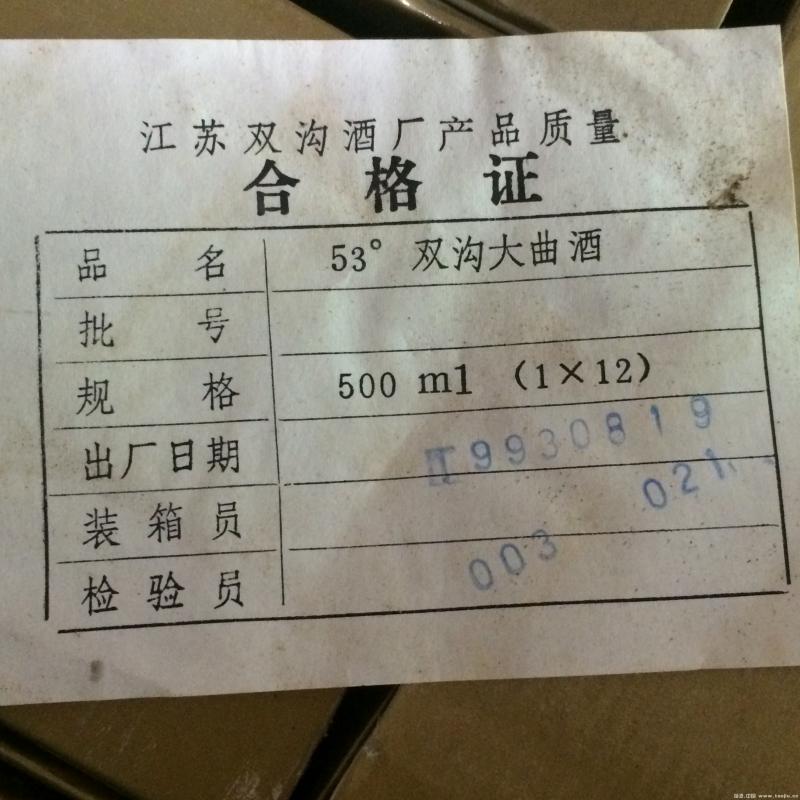 江苏双沟酒厂产品质量
合格证
品名 53° 双沟大曲酒
批号
规格 500 ml (1×12)
出厂日期 9930819
装箱员 021
检验员 003
www.taojiu.cn